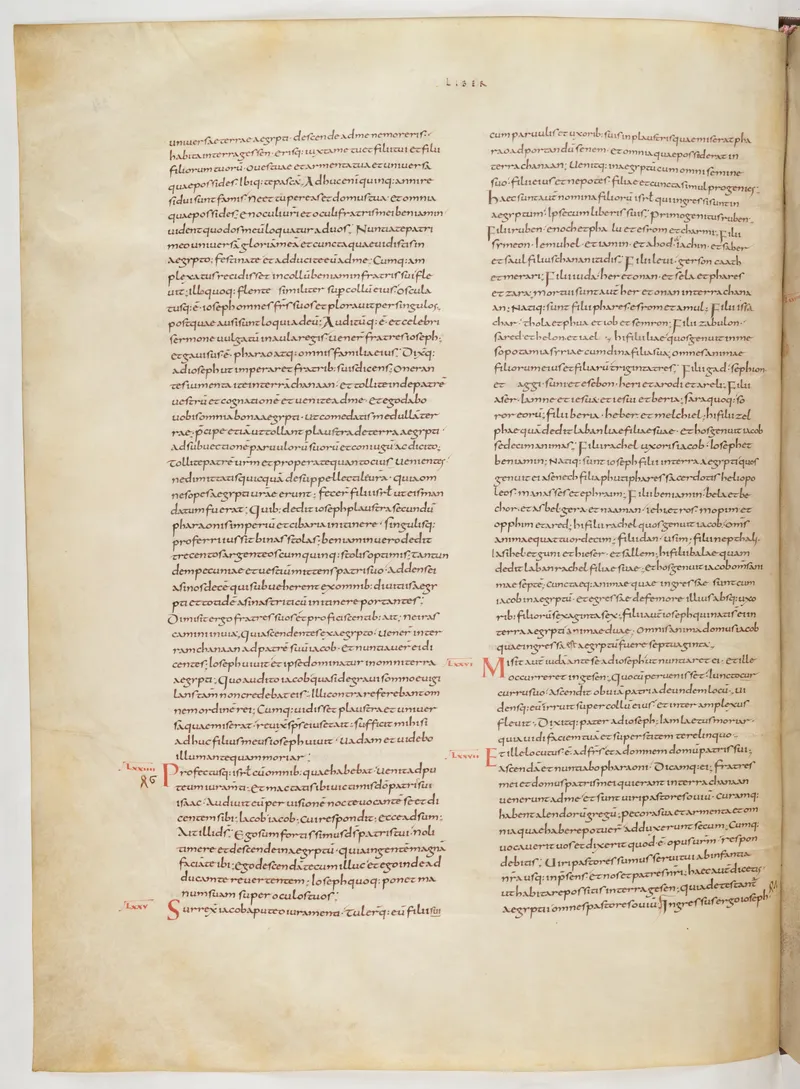 LIBER
uniuersae terrae aegypti. descende adme nemoreris.
habita interra gessen. erisq: iuxta me tu et filii tui et filii
filiorum tuorū. oues tuae et armenta tua et uniuersa
quae possides. Ibiq: te pascā. Adhuc enī quinq: anni re
sidui sunt famis. nec tu pereas et domus tua. et omnia
quae possides. En oculi ur̄i et oculi fratris mei beniamin
uident quod os meū loquatur ad uos. Nuntiate patri
meo uniuersā gloriā meā et cuncta quae uidistis in
aegypto; festinate et adducite eū adme; Cumq: am
plexatus recidisset in collū beniamin fratris sui fle
uit; illo quoq: flente similiter sup collū eius. Oscula
tusq: ē ioseph omnes fr̄s suos et plorauit per singulos.
postquae ausi sunt loqui ad eū; Auditūq: ē et celebri
sermone uulgatū in aula regis. uener̄ fratres ioseph;
et gauisus ē pharao atq: omnis familia eius. Dixq:
ad ioseph ut imperaret fratrib: suis dicens. Oneran
tes iumenta ite interrā chanaan. et tollite inde patrē
uestrū et cognationē et uenite adme. et ego dabo
uobis omnia bona aegypti. ut comedatis medullā ter
rae; p̄cipe etiā ut tollant plaustra deterra aegypti
ad subuectionē paruulorū suorū et coniugū ac dicito;
Tollite patrē ur̄m et properate quantocius uenientes.
ne dimittatis quicquā desuppellectili ur̄a. quia om
nes opes aegypti ur̄ae erunt; feceŕ filii isrl ut eis man
datum fuerat; Quib: dedit ioseph plaustra secundū
pharaonis imperiū et cibaria in itinere. singulisq:
proferri iussit binas stolas. beniamin uero dedit
trecentos argenteos cum quinq: stolis optimis. tantun
dem pecuniae et uestiū mittens patri suo. addens ei
asinos decē qui subueherent ex omnib: diuitiis aegy
pti et totidē asinas triticū in itinere portantes;
Dimisit ergo fratres suos et proficiscentib: ait; ne iras
camini in uia. Qui ascendentes ex aegypto. uener̄ in ter
ram chanaan ad patrē suū iacob. et nuntiauer̄ ei di
centes; Ioseph uiuit et ipse dominatur in omni terra
aegypti; Quo audito iacob quasi de graui somno euigi
lans tam̄ non credebat eis. Illi contra referebant om
nem ordinē rei; Cumq: uidisset plaustra et uniuer
sa quae miserat. reuixit sp̄s eius et ait. sufficit mihi si
adhuc filius meus ioseph uiuit. uadam et uidebo
illum antequam moriar;
LXXIIII Profectusq: isrl cū omnib: quae habebat. uenit ad pu
teum iuramti. et mactatis ibi uictimis dō patris sui
isaac. Audiuit eū per uisionē nocte uocantē se et di
centem sibi. Iacob iacob. Cui respondit; ecce adsum;
Ait illi ds̄; Ego sum fortissimus ds̄ patris tui. noli
timere et descende in aegyptū. quia in gentē magnā
faciā te ibi; ego descendā tecum illuc et ego inde ad
ducam te reuertentem; Ioseph quoq: ponet ma
num suam super oculos tuos;
LXXV Surrex̄ iacob a puteo iuramenti. Tulerq: eū filii sui
cum paruulis et uxorib: suis in plaustris quae miserat pha
rao ad portandū senem. et omnia quae possiderat in
terra chanaan; Uenitq: in aegyptum cum omni semine
suo. filii eius et nepotes. filiae et cuncta simul progenies;
Haec sunt aut̄ nomina filiorū isrl qui ingressi sunt in
aegyptum. Ipse cum liberis suis. Primogenitus ruben.
Filii ruben. enoch et phallu et esrom et charmi; Filii
symeon. Iemuhel et iamin. et ahod. Iachin. et saber
et saul filius chananitidis. Filii leui. gerson caath
et merari; Filii iuda. her et onan. et sela et phares
et zara; mortui sunt aut̄ her et onan interra chana
an; Natiq: sunt filii phares. esrom et amul; Filii issa
char. thola et phua et iob et semron; Filii zabulon.
sared et helon et iael. hi filii liae quos genuit in me
sopotamia syriae cum dina filia sua; omnes animae
filiorum eius et filiarū triginta tres; Filii gad. sephion
et aggi. suni et esebon. heri et arodi et areli; Filii
aser. Iamne et iesua et iesui et beria; sara quoq: so
ror eorū; filii beria. heber et melchiel; hi filii zel
phae quā dedit laban liae filiae suae. et hos genuit iacob
sedecim animas; Filii rachel uxoris iacob. Ioseph et
beniamin; Natiq: sunt ioseph filii interra aegypti quos
genuit ei asenech filia phutiphares sacerdotis heliopo
leos. manasses et ephraim; Filii beniamin. bela et be
chor. et asbel. gera et naaman. iehi et ros. mopim et
opphim et ared; hi filii rachel quos genuit iacob; om̄s
animae quattuordecim; filii dan. usim; filii nepthalj.
Iasihel et guni et hieser. et sallem; hi filii balae quam
dedit laban racheli filiae suae. et hos genuit iacob om̄s ani
mae septē; cunctaeq: animae quae ingressae sunt cum
iacob in aegyptū. et egressae de femore illius absq: uxo
rib: filiorū sexaginta sex; filii aut̄ ioseph qui nati s̄ ei in
terra aegypti animae duae; Omnis animae domus iacob
quae ingressa ē aegyptū fuere septuaginta;
LXXVI Misit aut̄ iudā ante se ad ioseph ut nuntiaret ei. et ille
occurreret in gessen; Quo cū peruenisset. Iuncto cur
ru suo. ascendit obuiā patri ad eundem locū; ui
densq: eū irruit super collū eius. et inter amplexus
fleuit. Dixitq: pater ad ioseph; Iam laetus moriar.
quia uidi faciem tuā et superstitem te relinquo.
LXXVII Et ille locutus ē. ad fr̄s et ad omnem domū patris sui;
ascendā et nuntiabo pharaoni. Dicamq: ei; fratres
mei et domus patris mei qui erant interra chanaan
uenerunt adme. et sunt uiri pastores ouiū. curamq:
habent alendorū gregū; pecora sua et armenta et om
nia quae habere potuer̄ adduxerunt secum; Cumq:
uocauerit uos et dixerit quod ē opus ur̄m. respon
debitis; Uiri pastores sumus serui tui ab infantia
nr̄a usq: in p̄sens. et nos et patres nr̄i; haec aut̄ dicetis
ut habitare possitis interra gesen; quia detestant̄
aegyptii omnes pastores ouiū; Ingressus ergo ioseph